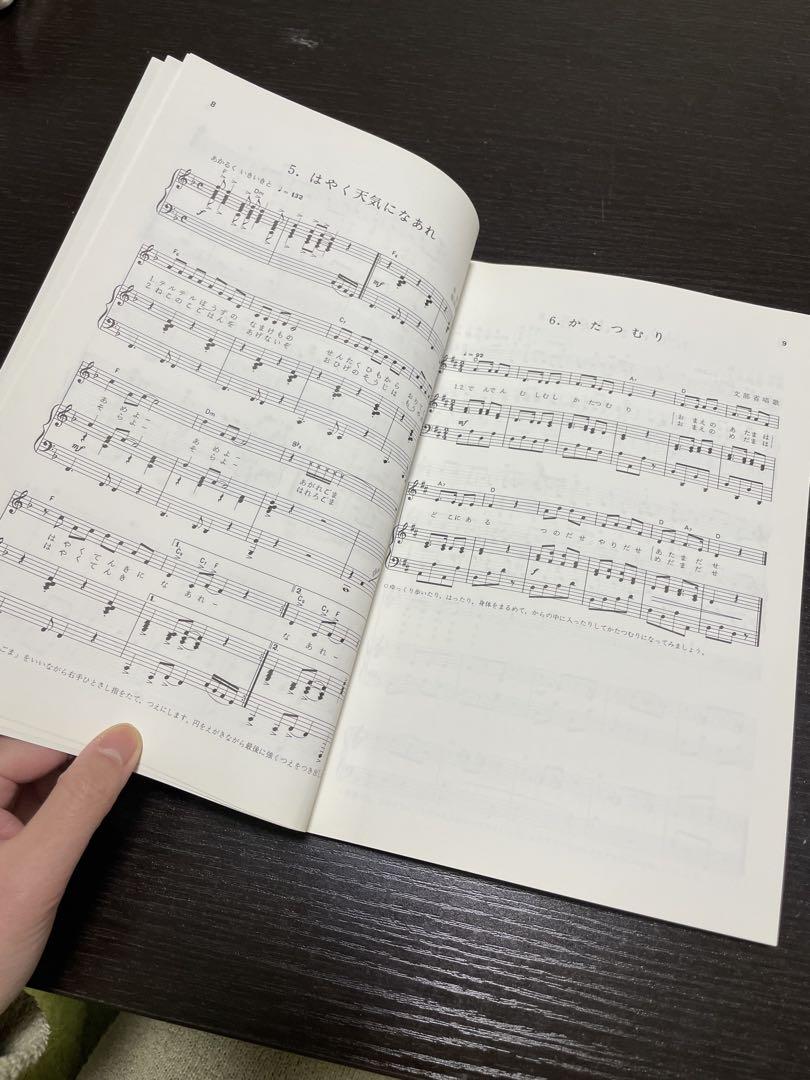 8
5. はやく天気になあれ
あかるく いきいきと ♩=132
F Dm
f
F6
mf
F6 C7
1.テルテルぼうずの なまけもの せんたくひもから おち
2.ねこのこごはんを あげないぞ おひげのそうじは もう
F Dm B♭6
あめよー あめよー あがれごま
そらよー そらよー はれろごま
mf
F C7 F
はやくてんきに なあれー
はやくてんき
1. C7 C7 F
2. C7 C7 F
なあれー
1.
2.
ごま」をいいながら右手ひとさし指をたて、つえにします。円をえがきながら最後に強くつえをつき出
9
6. かたつむり
文部省唱歌
♩=92
A7 D
1.2.でんでん むしむし かたつむり おまえの あたまは
おまえの めだまは
mf
A7 D D A7 D
どこにある つのだせ やりだせ あたまだせ
めだまだせ
○ゆっくり歩いたり、はったり、身体をまるめて、からの中に入ったりしてかたつむりになってみましょう。